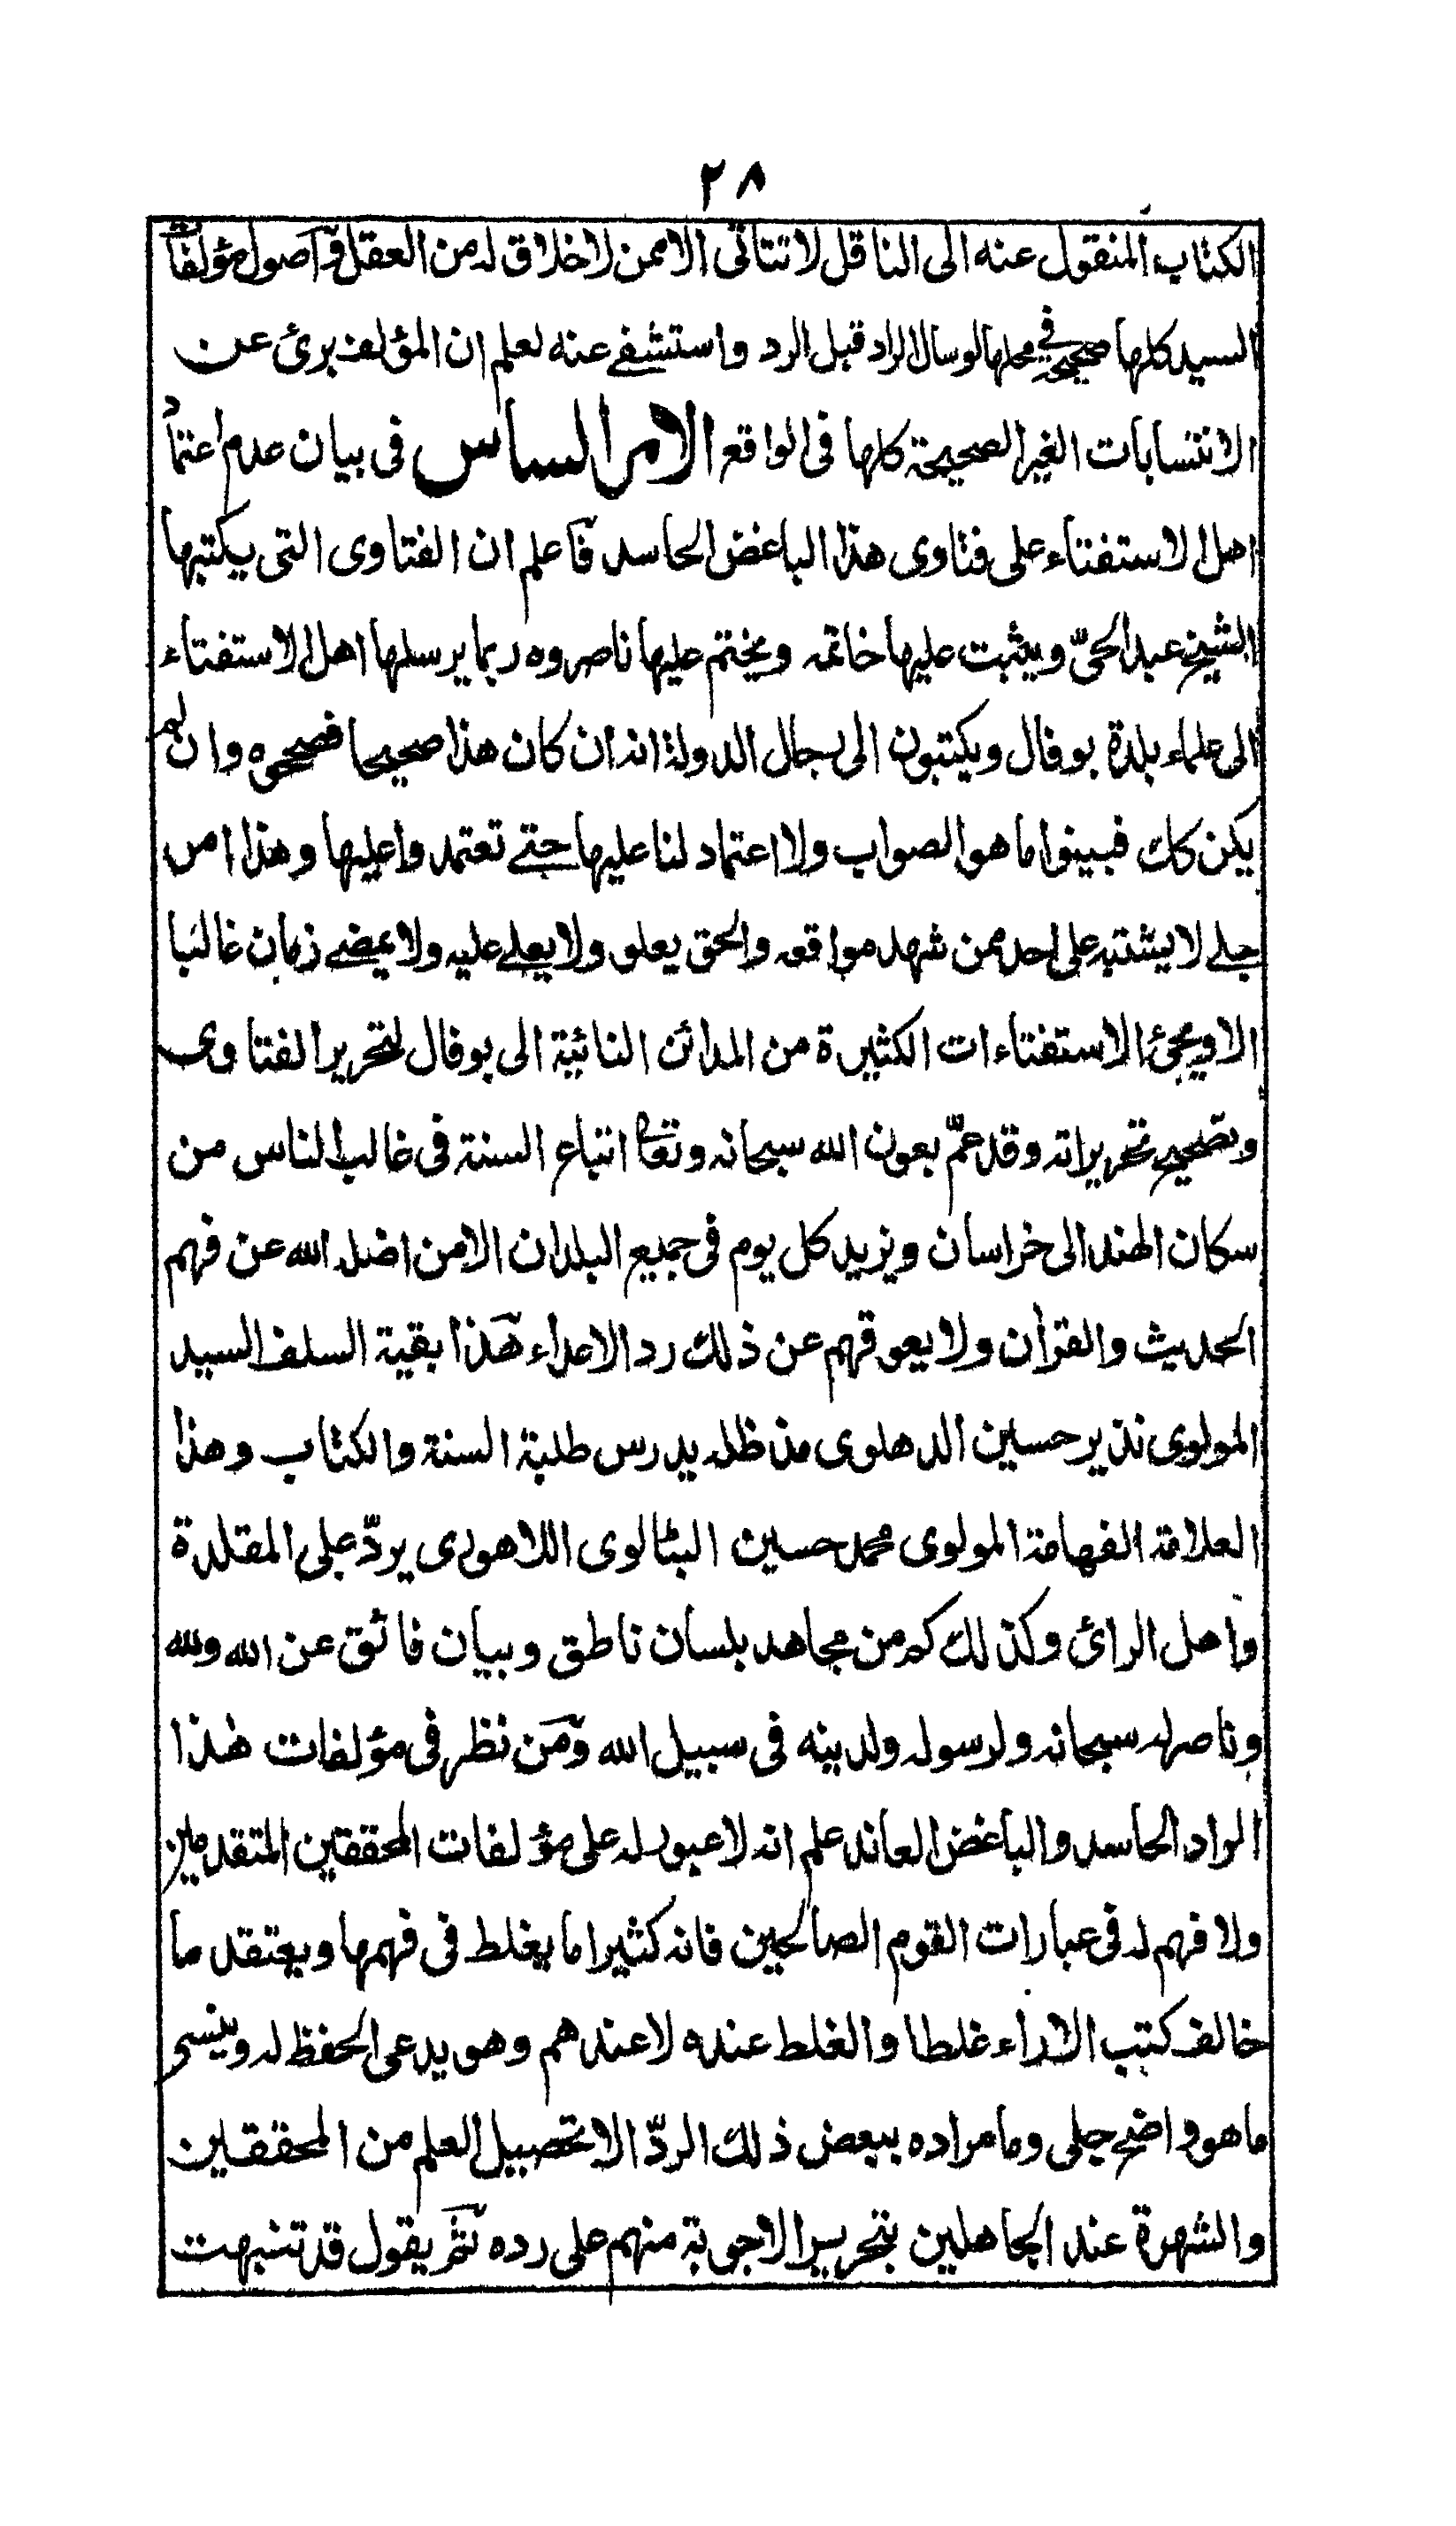 ٢٨
الكتاب المنقول عنه الى الناقل لا تتاتى الا ممن لا خلاق له من العقل و اصول مؤلفات
السيد كلها صحيحة في محلها لو سال الراد قبل الرد واستشفى عنه لعلم ان المؤلف برئ عن
الانتسابات الغير الصحيحة كلها فى الواقع الامر السادس فى بيان عدم اعتماد
اهل الاستفتاء على فتاوى هذا الباغض الحاسد فاعلم ان الفتاوى التى يكتبها
الشيخ عبد الحىّ ويثبت عليها خاتمه ويختم عليها ناصروه ربما يرسلها اهل الاستفتاء
الى علماء بلدة بوفال ويكتبون الى رجال الدولة انه ان كان هذا صحيحا فصححوه وان لم
يكن كك فبينوا ما هو الصواب ولا اعتماد لنا عليها حتى تعتمدوا عليها وهذا امر
جلے لا يشتبه على احد ممن شهد مواقعه والحق يعلو ولا يعلے عليه ولا يمضے زمان غالبا
الا ويجئ الاستفتاءات الكثيرة من المدائن النائية الى بوفال لتحرير الفتاوى
وتصحيح تحريراته وقد عمّ بعون الله سبحانه وتعالى اتباع السنة فى غالب الناس من
سكان الهند الى خراسان ويزيد كل يوم فى جميع البلدان الا من اضله الله عن فهم
الحديث والقرأن ولا يعوقهم عن ذلك رد الاعداء هذا بقية السلف السيد
المولوى نذير حسين الدهلوى مد ظله يدرس طلبة السنة والكتاب وهذا
العلامة الفهامة المولوى محمد حسين البٹالوى اللاهورى يردّ على المقلدة
واهل الرائ وكذلك كم من مجاهد بلسان ناطق وبيان فائق عن الله ولله
وناصر له سبحانه ولرسوله ولدينه فى سبيل الله ومن نظر فى مؤلفات هذا
الراد الحاسد والباغض العاند علم انه لا عبور له على مؤلفات المحققين المتقدمين
ولا فهم له فى عبارات القوم الصالحين فانه كثيرا ما يغلط فى فهمها ويعتقد ما
خالف كتب الاراء غلطا والغلط عنده لا عندهم وهو يدعى الحفظ له وينسى
ما هو واضح جلى وما مراده ببعض ذلك الردّ الا تحصيل العلم من المحققين
والشهرة عند الجاهلين بتحرير الاجوبة منهم على رده ثم يقول قد تنبهت